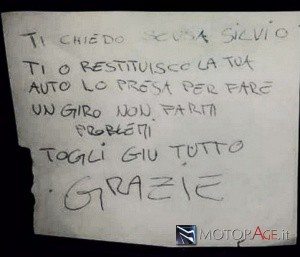 TI CHIEDO SCUSA SILVIO
TI O RESTITUISCO LA TUA
AUTO LO PRESA PER FARE
UN GIRO NON FARMI
PROBLEMI
TOGLI GIU TUTTO
GRAZIE
MOTORAGE.it